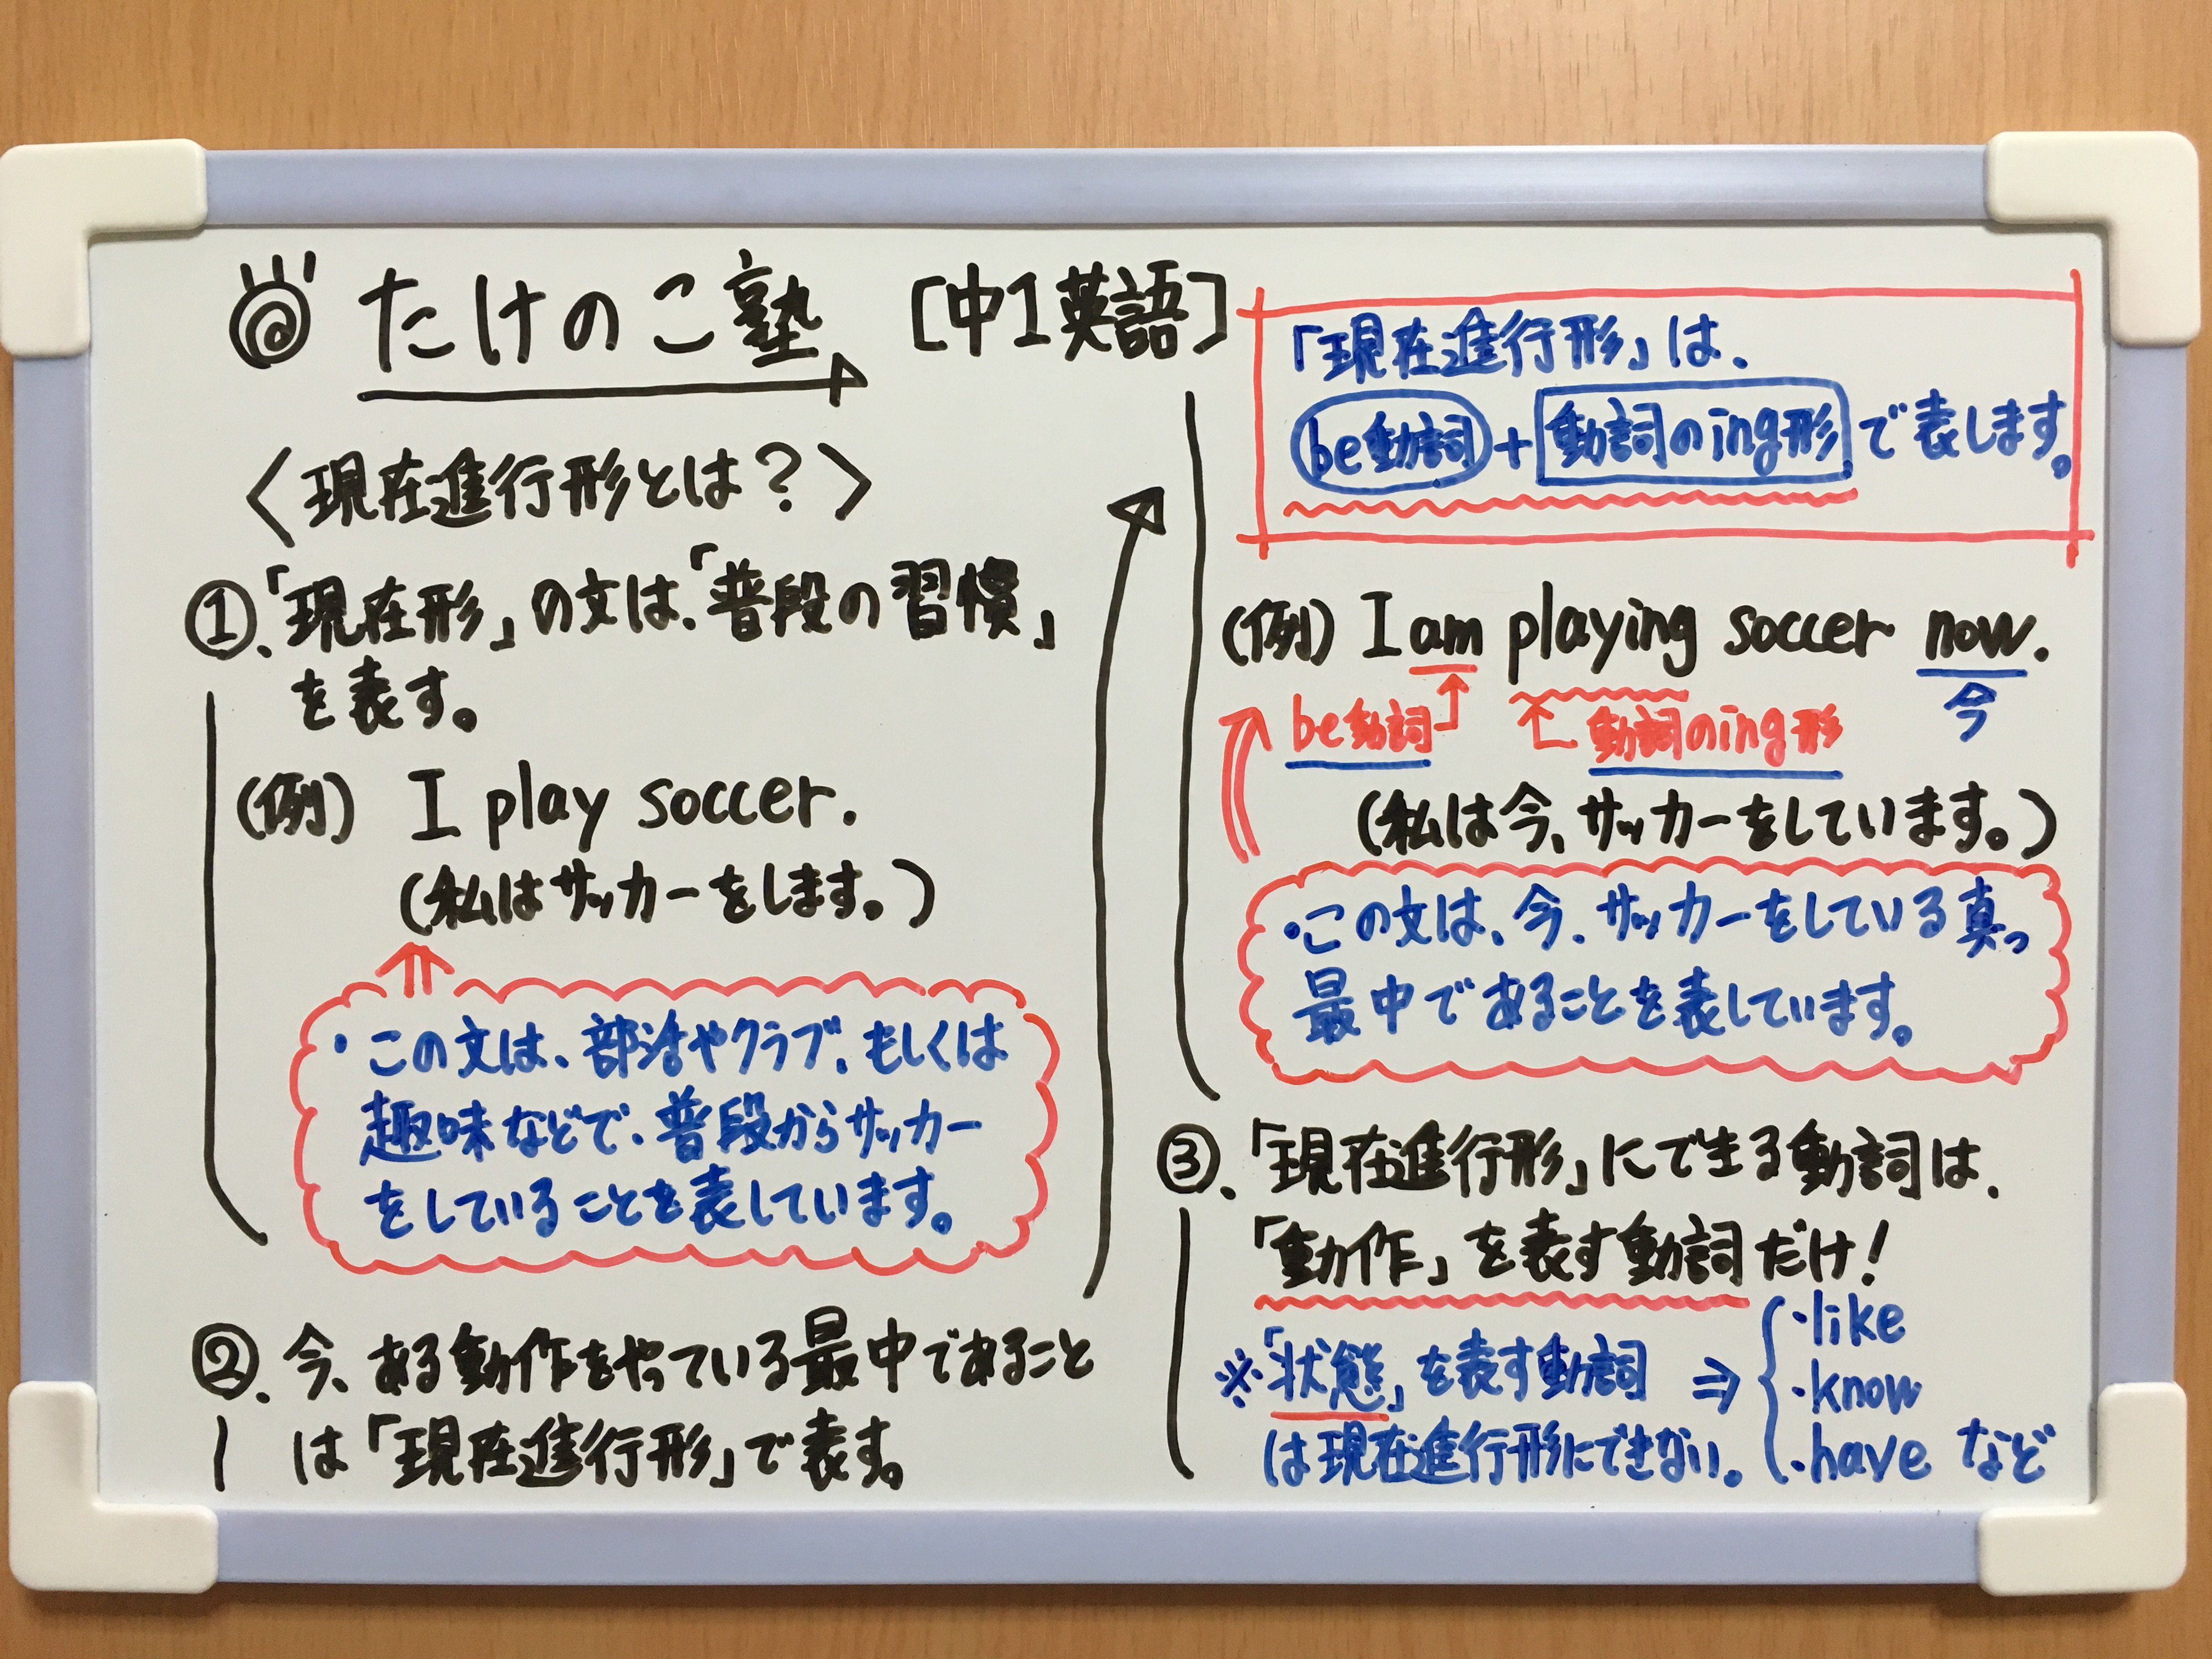 たけのこ塾 [中1英語]
〈現在進行形とは?〉
①.「現在形」の文は、「普段の習慣」
を表す。
(例) I play soccer.
(私はサッカーをします。)
・この文は、部活やクラブ、もしくは
趣味などで、普段からサッカー
をしていることを表しています。
②.今、ある動作をやっている最中であること
は「現在進行形」で表す。
「現在進行形」は、
be動詞+動詞のing形で表します。
(例) I am playing soccer now.
be動詞 動詞のing形 今
(私は今、サッカーをしています。)
・この文は、今、サッカーをしている真っ
最中であることを表しています。
③.「現在進行形」にできる動詞は、
「動作」を表す動詞だけ!
※「状態」を表す動詞
は現在進行形にできない。
⇒
・like
・know
・have など